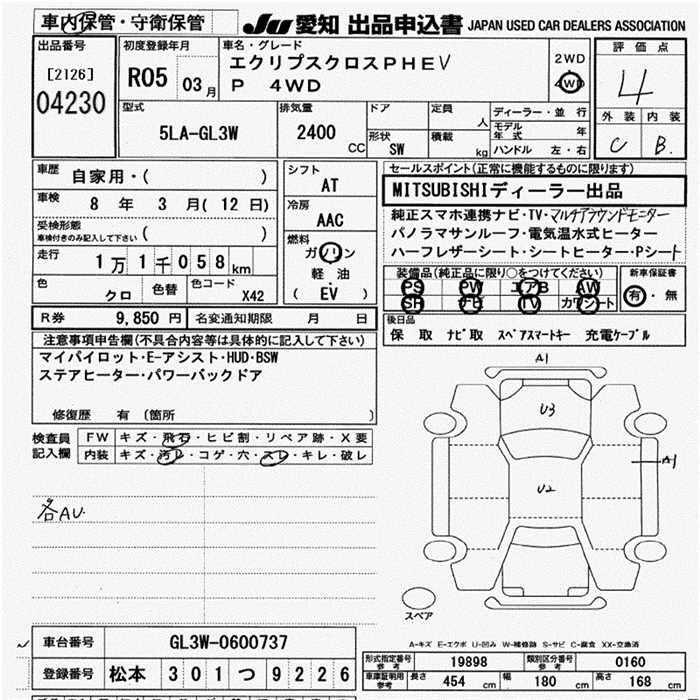 車内保管・守衛保管
JU 愛知 出品申込書 JAPAN USED CAR DEALERS ASSOCIATION
出品番号
[2126]
04230
初度登録年月
R05 03月
車名・グレード
エクリプスクロスPHEV
P 4WD
2WD
4WD
評価点
4
外装 内装
C B.
型式
5LA-GL3W
排気量
2400 CC
ドア
形状
SW
定員
人
積載
kg
ディーラー・並行
モデル年式 年
ハンドル 左・右
車歴
自家用・( )
車検
8 年 3 月( 12 日)
受検形態
車検付きのみ記入して下さい ( )
走行
1万1千058km
色
クロ
色替
色コード
X42
シフト
AT
冷房
AAC
燃料
ガソリン
軽油
( EV )
セールスポイント(正常に機能するものに限ります)
MITSUBISHIディーラー出品
純正スマホ連携ナビ・TV・マルチアラウンドモニター
パノラマサンルーフ・電気温水式ヒーター
ハーフレザーシート・シートヒーター・Pシート
装備品(純正品に限り○をつけてください)
PS PW エアB AW
SR ナビ TV カワシート
新車保証書
有・無
R券 9,850円 名変通知期限 月 日
後日品
保 取 ナビ取 スペアスマートキー 充電ケーブル
注意事項申告欄(不具合内容等は具体的に記入して下さい)
マイパイロット・E-アシスト・HUD・BSW
ステアヒーター・パワーバックドア
修復歴 有 (箇所 )
検査員
記入欄
FW キズ・飛石・ヒビ割・リペア跡・X要
内装 キズ・汚レ・コゲ・穴・スレ・キレ・破レ
各AU
A1
U3
A1
U2
スペア
A-キズ E-エクボ U-凹み W-補修跡 S-サビ C-腐食 XX-交換済
車台番号 GL3W-0600737
登録番号 松本 301 つ 9226
形式指定番号参考 19898 類別区分番号参考 0160
車庫証明用参考 長さ 454 cm 幅 180 cm 高さ 168 cm